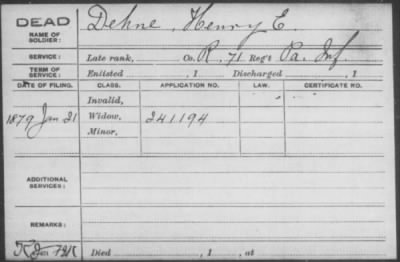 DEAD
NAME OF SOLDIER: Dehne, Henry E.
SERVICE: Late rank, Co. R, 71 Reg't Pa. Inf.
TERM OF SERVICE: Enlisted , 1 Discharged , 1
DATE OF FILING. CLASS. APPLICATION NO. LAW. CERTIFICATE NO.
Invalid,
1879 Jan 21 Widow, 241194
Minor,
ADDITIONAL SERVICES:
REMARKS:
Died , 1 , at